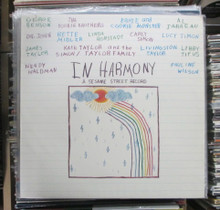 GEORGE BENSON THE DOOBIE BROTHERS ERNIE AND COOKIE MONSTER AL JARREAU
DR. JOHN BETTE MIDLER LINDA RONSTADT CARLY SIMON LUCY SIMON
JAMES TAYLOR KATE TAYLOR and the SIMON/TAYLOR FAMILY LIVINGSTON TAYLOR LIBBY TITUS
WENDY WALDMAN PAULINE WILSON
IN HARMONY
A SESAME STREET RECORD